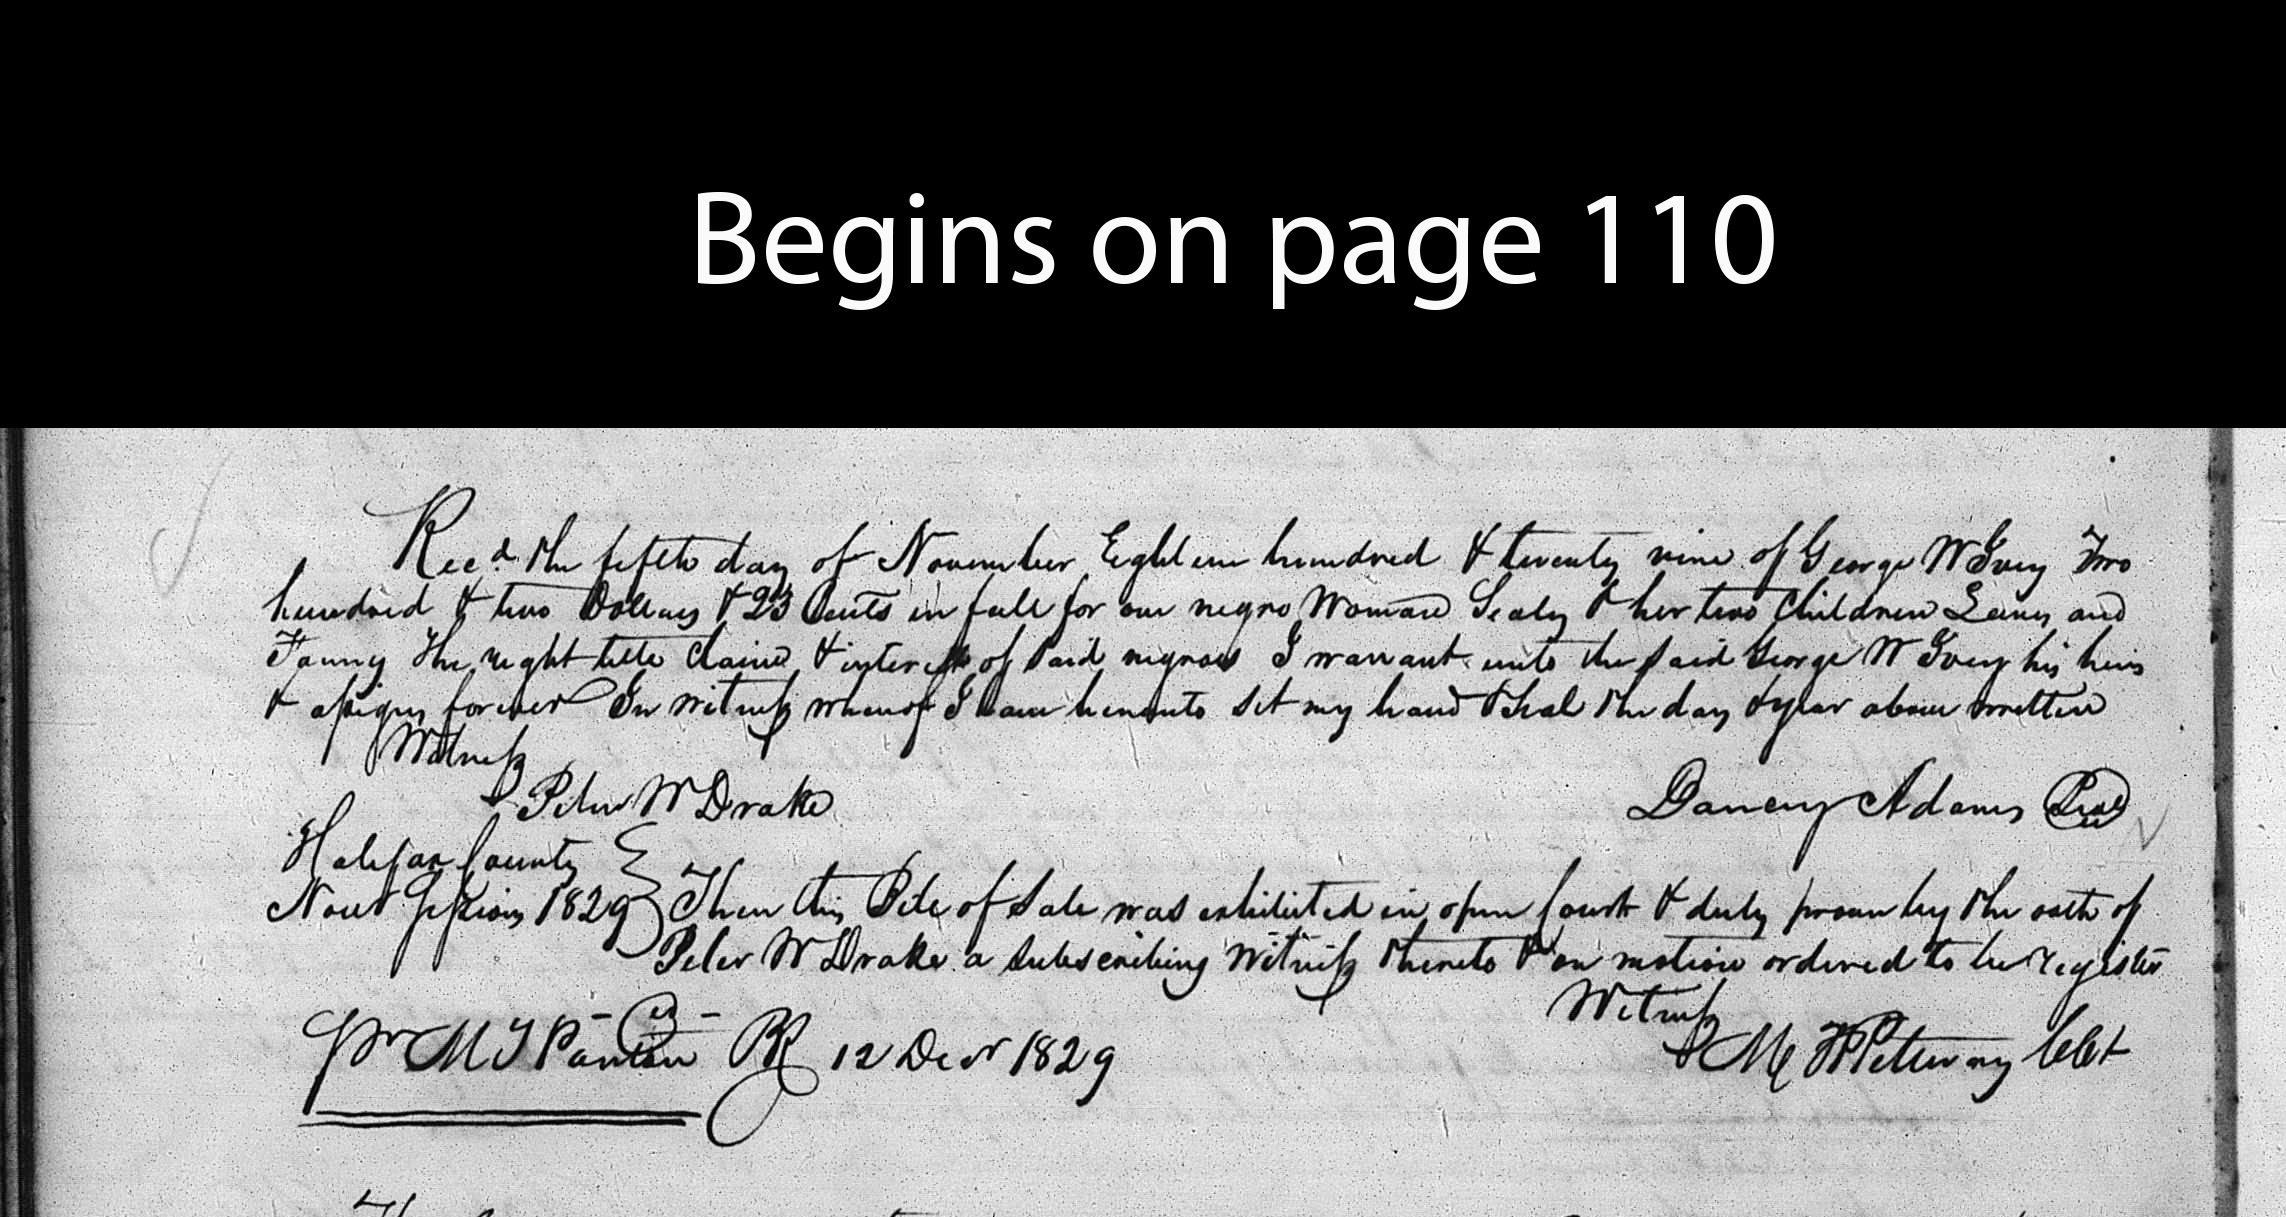 Begins on page 110
Recd. the fifth day of November Eighteen hundred & twenty nine of George W Ivey Two
hundred & two Dollars & 23 Cents in full for one negro Woman Sealy & her two Children Laney and
Fanny The right title claim & interest of said negroes I warrant unto the said George W Ivey his heirs
& assigns forever In witness whereof I have hereunto set my hand & Seal the day & year above written
Witness
Peter W Drake
Dancey Adams Seal
Halifax County
Novr Sessions 1829 Then this Bile of Sale was exhibited in open Court & duly proven by the oath of
Peter W Drake a subscribing Witness thereto & on motion ordered to be register
Witness
pr M T Ponton PR 12 Decr 1829
M H Pettway Clk